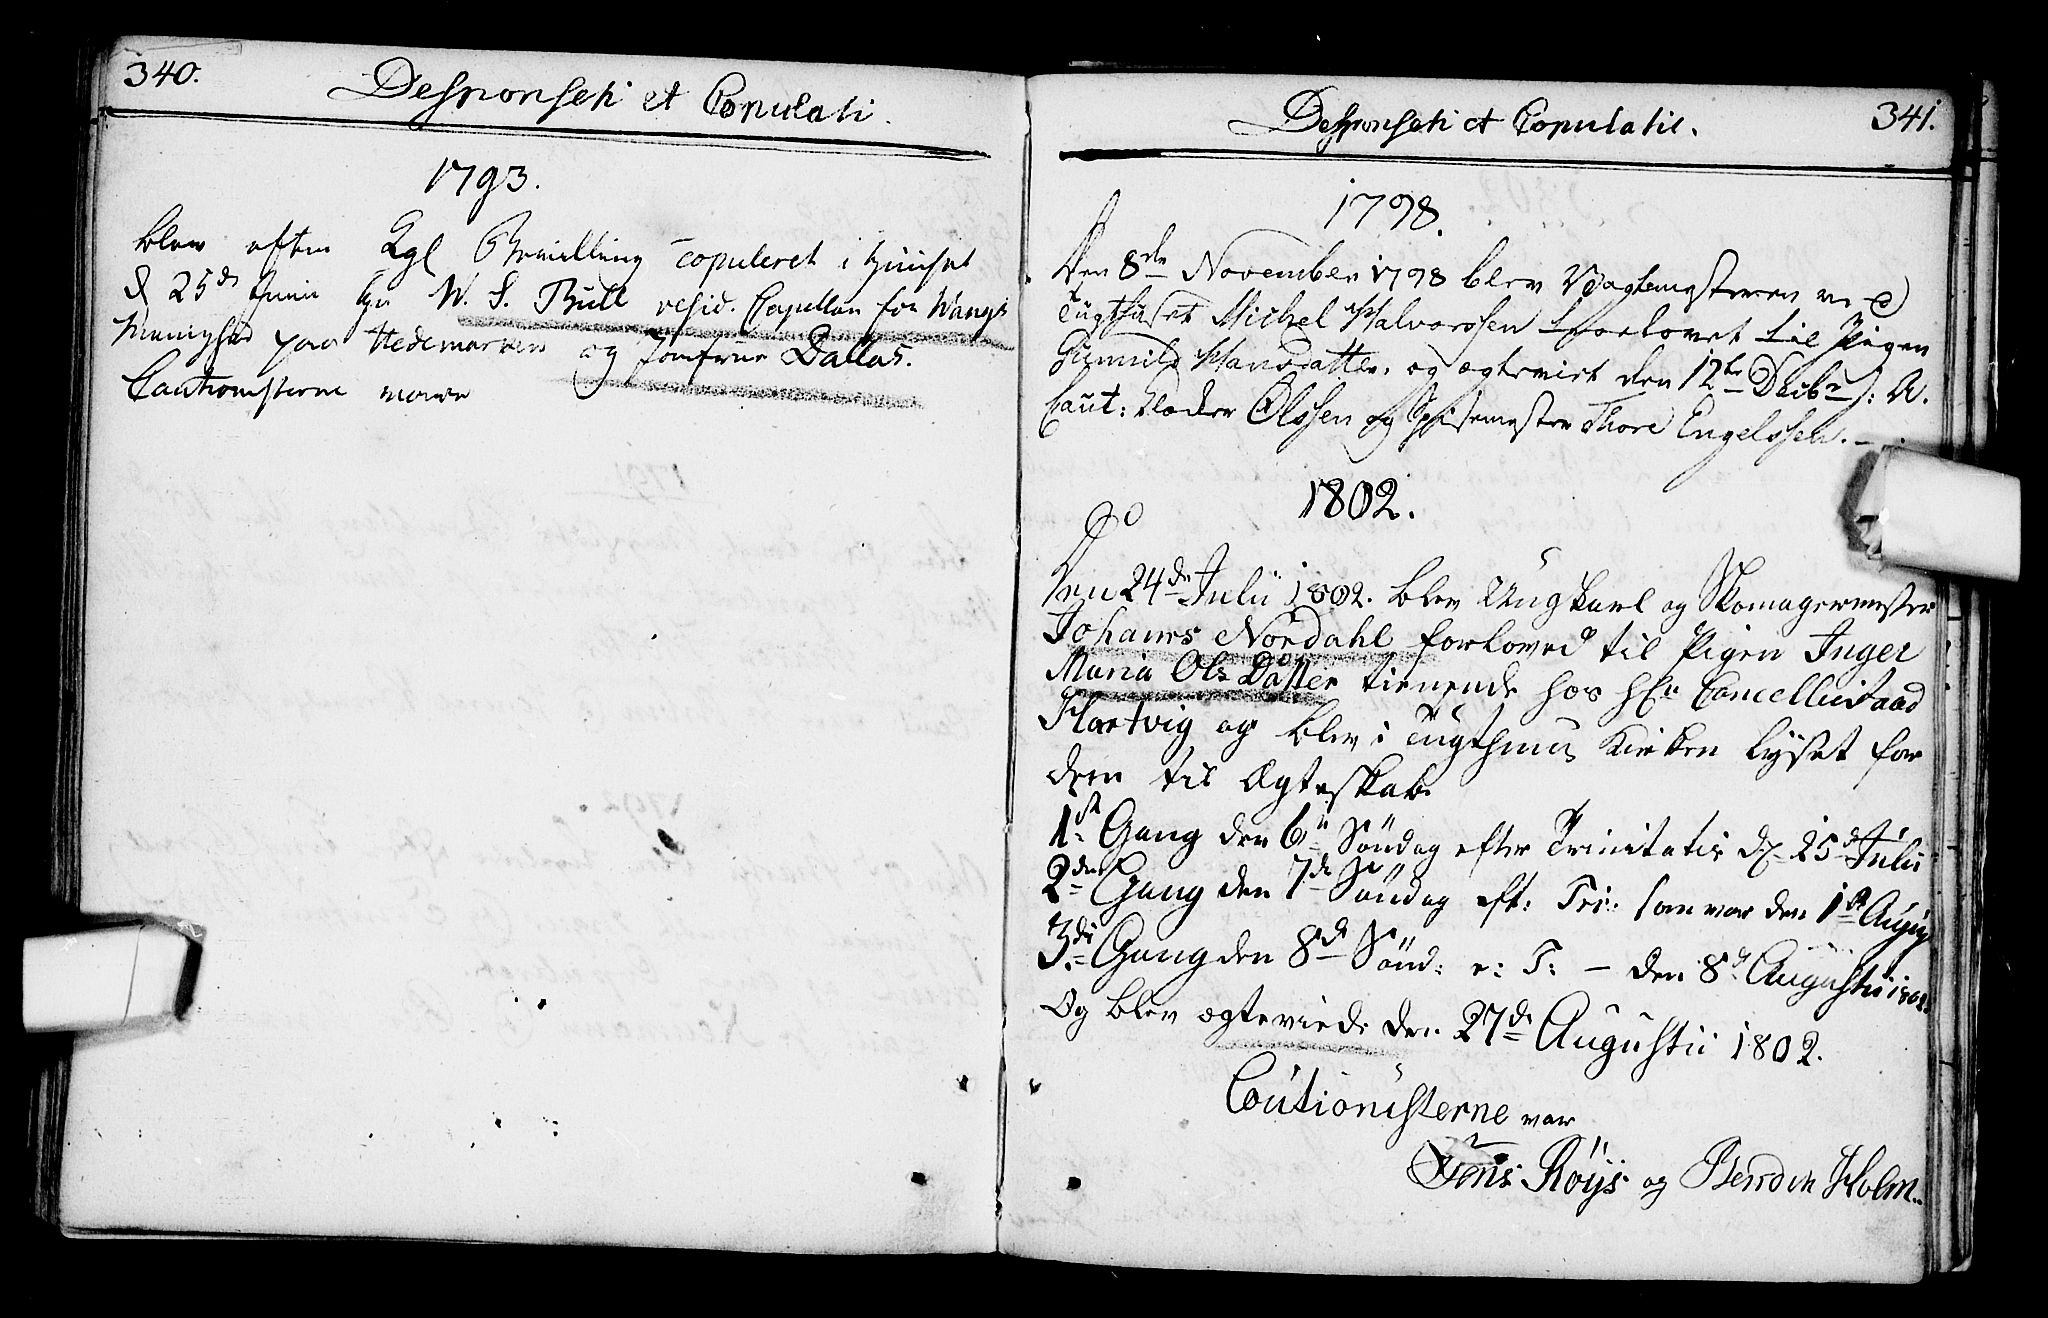 340.
Desponsati et Copulati.
1793.
blev efter Kgl Bevilling copuleret i Huuset
d 25de Junii Hr W. S. Bull resid. Capellan for Wangs
Menighed paa Hedemarken og Jomfrue Dallas.
Cautionisterne vare
341.
Desponsati et Copulatie.
1798.
Den 8de November 1798 blev Vagtmesteren ved
Tugthuset Michel Halvorssen trolovet til Pigen
Gunnild Hansdatter, og ægteviet den 12te Decbr s: A.
Caut: Olssen og Spisemester Thore Engelssen.
1802.
Den 24de Julii 1802. blev Ungkarl og Skomagermester
Johanes Nordahl forloved til Pigen Inger
Maria Ols Datter tienende hos Hr Cancelliraad
Hartvig og blev i Tugthuus Kirken lyset for
dem til Ægteskab.
1st Gang den 6te Søndag efter Trinitatis d. 25de Julii
2den Gang den 7de Søndag eft: Tri: som var den 1ste Augu
3die Gang den 8de Sønd: e: T: – den 8de Augustii 1802.
Og blev ægteviede den 27de Augustii 1802.
Coutionisterne var
Jens Röys og Bendix Holm.